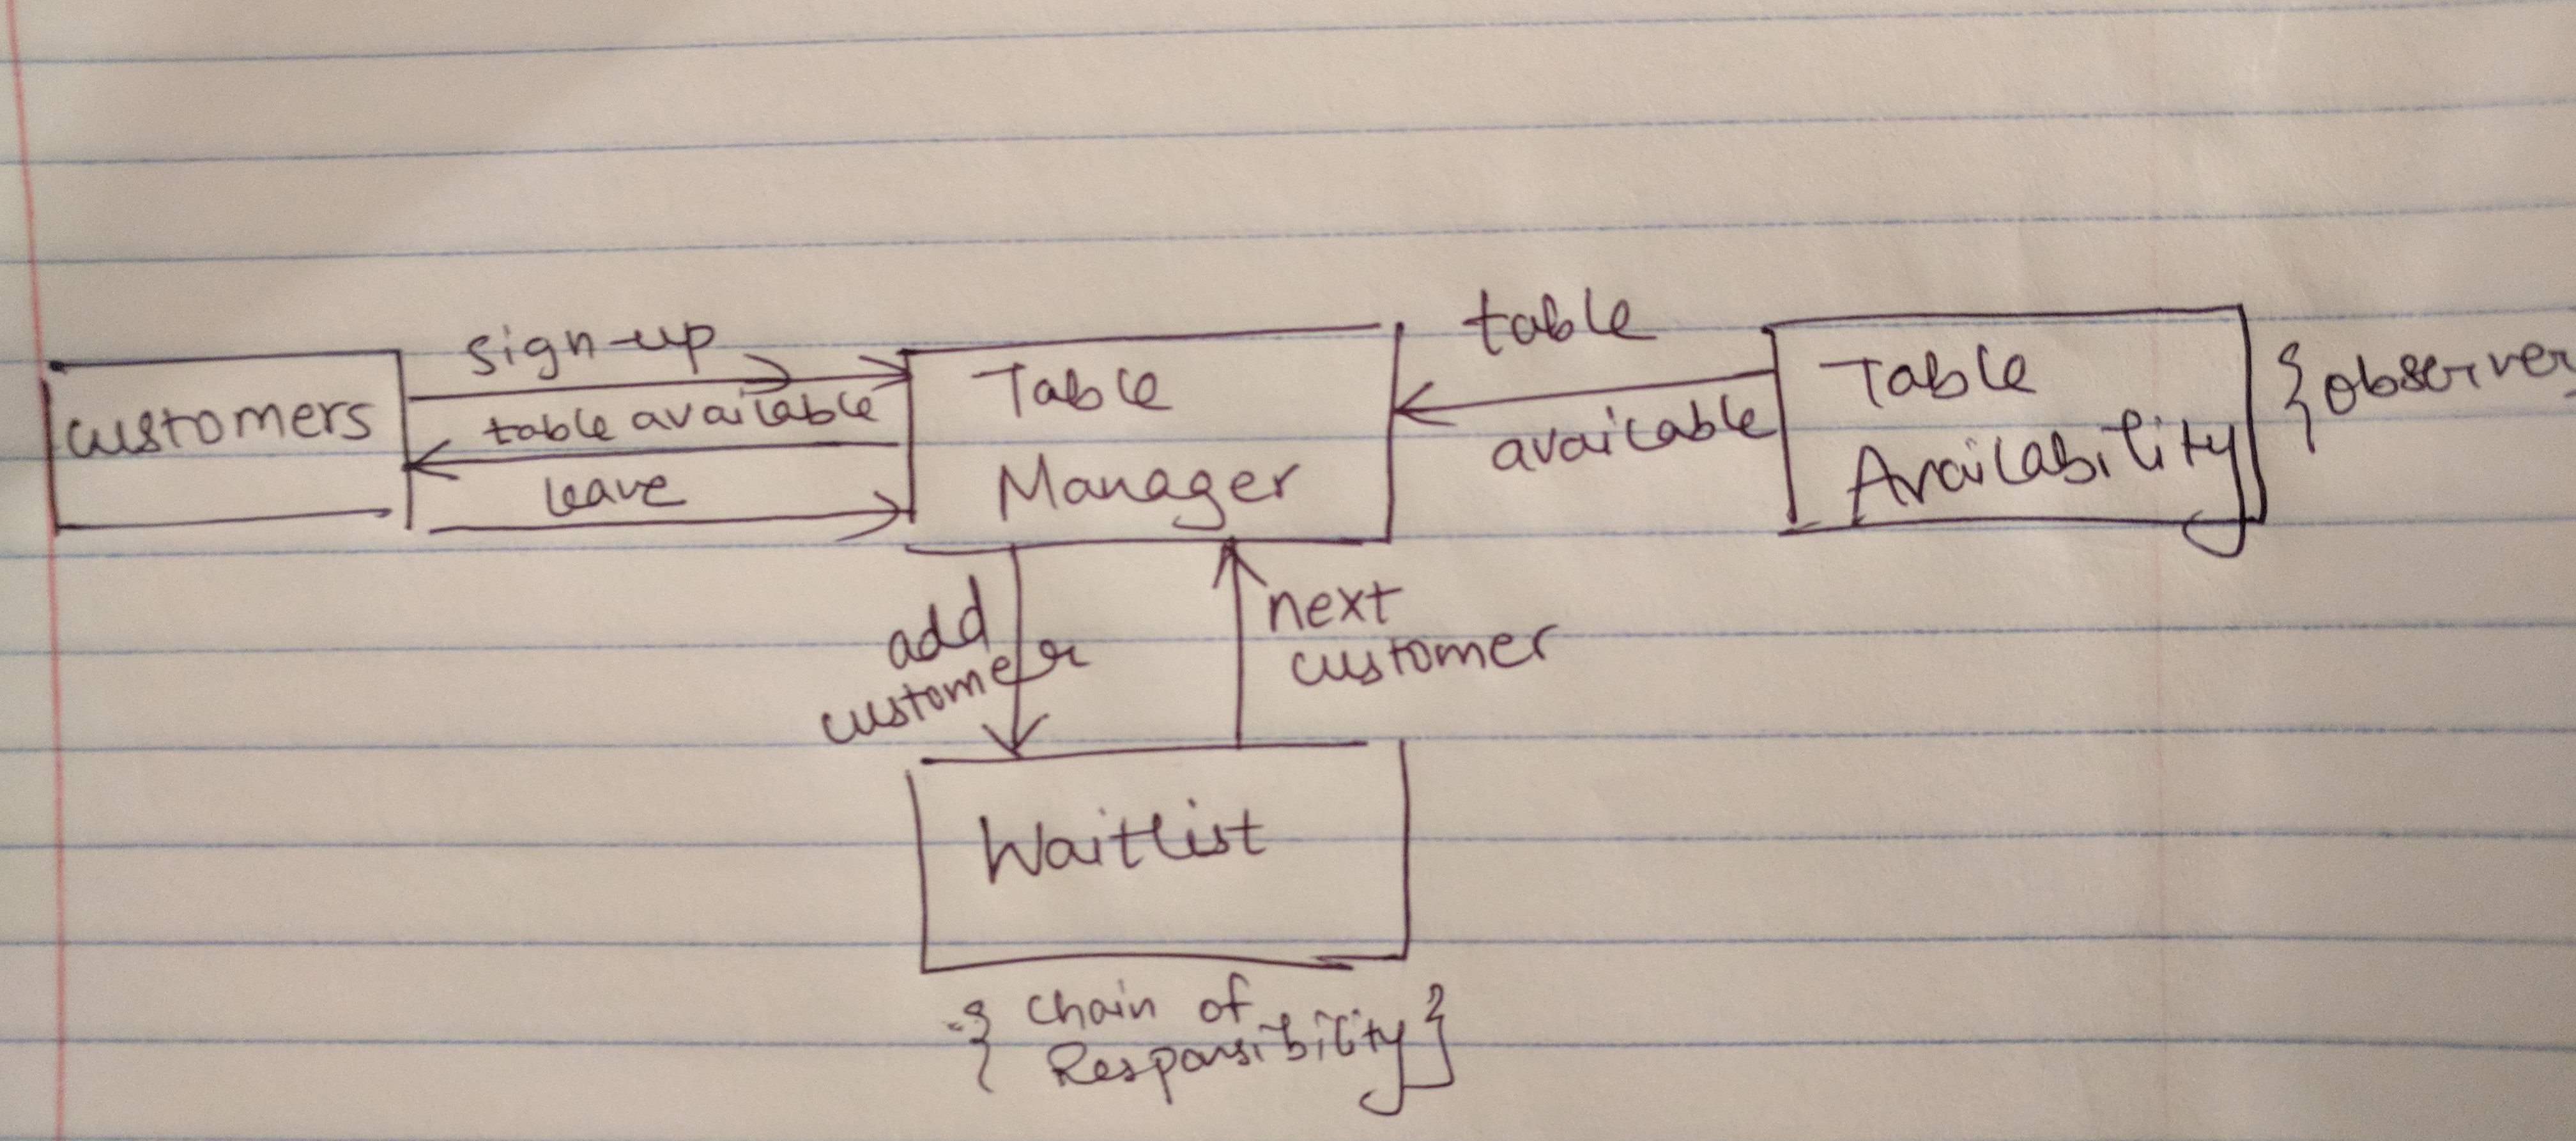 sign-up
customers
table available
leave
Table
Manager
table
available
Table
Availability
{observer
add
customer
next
customer
Waitlist
{ Chain of
Responsibility }